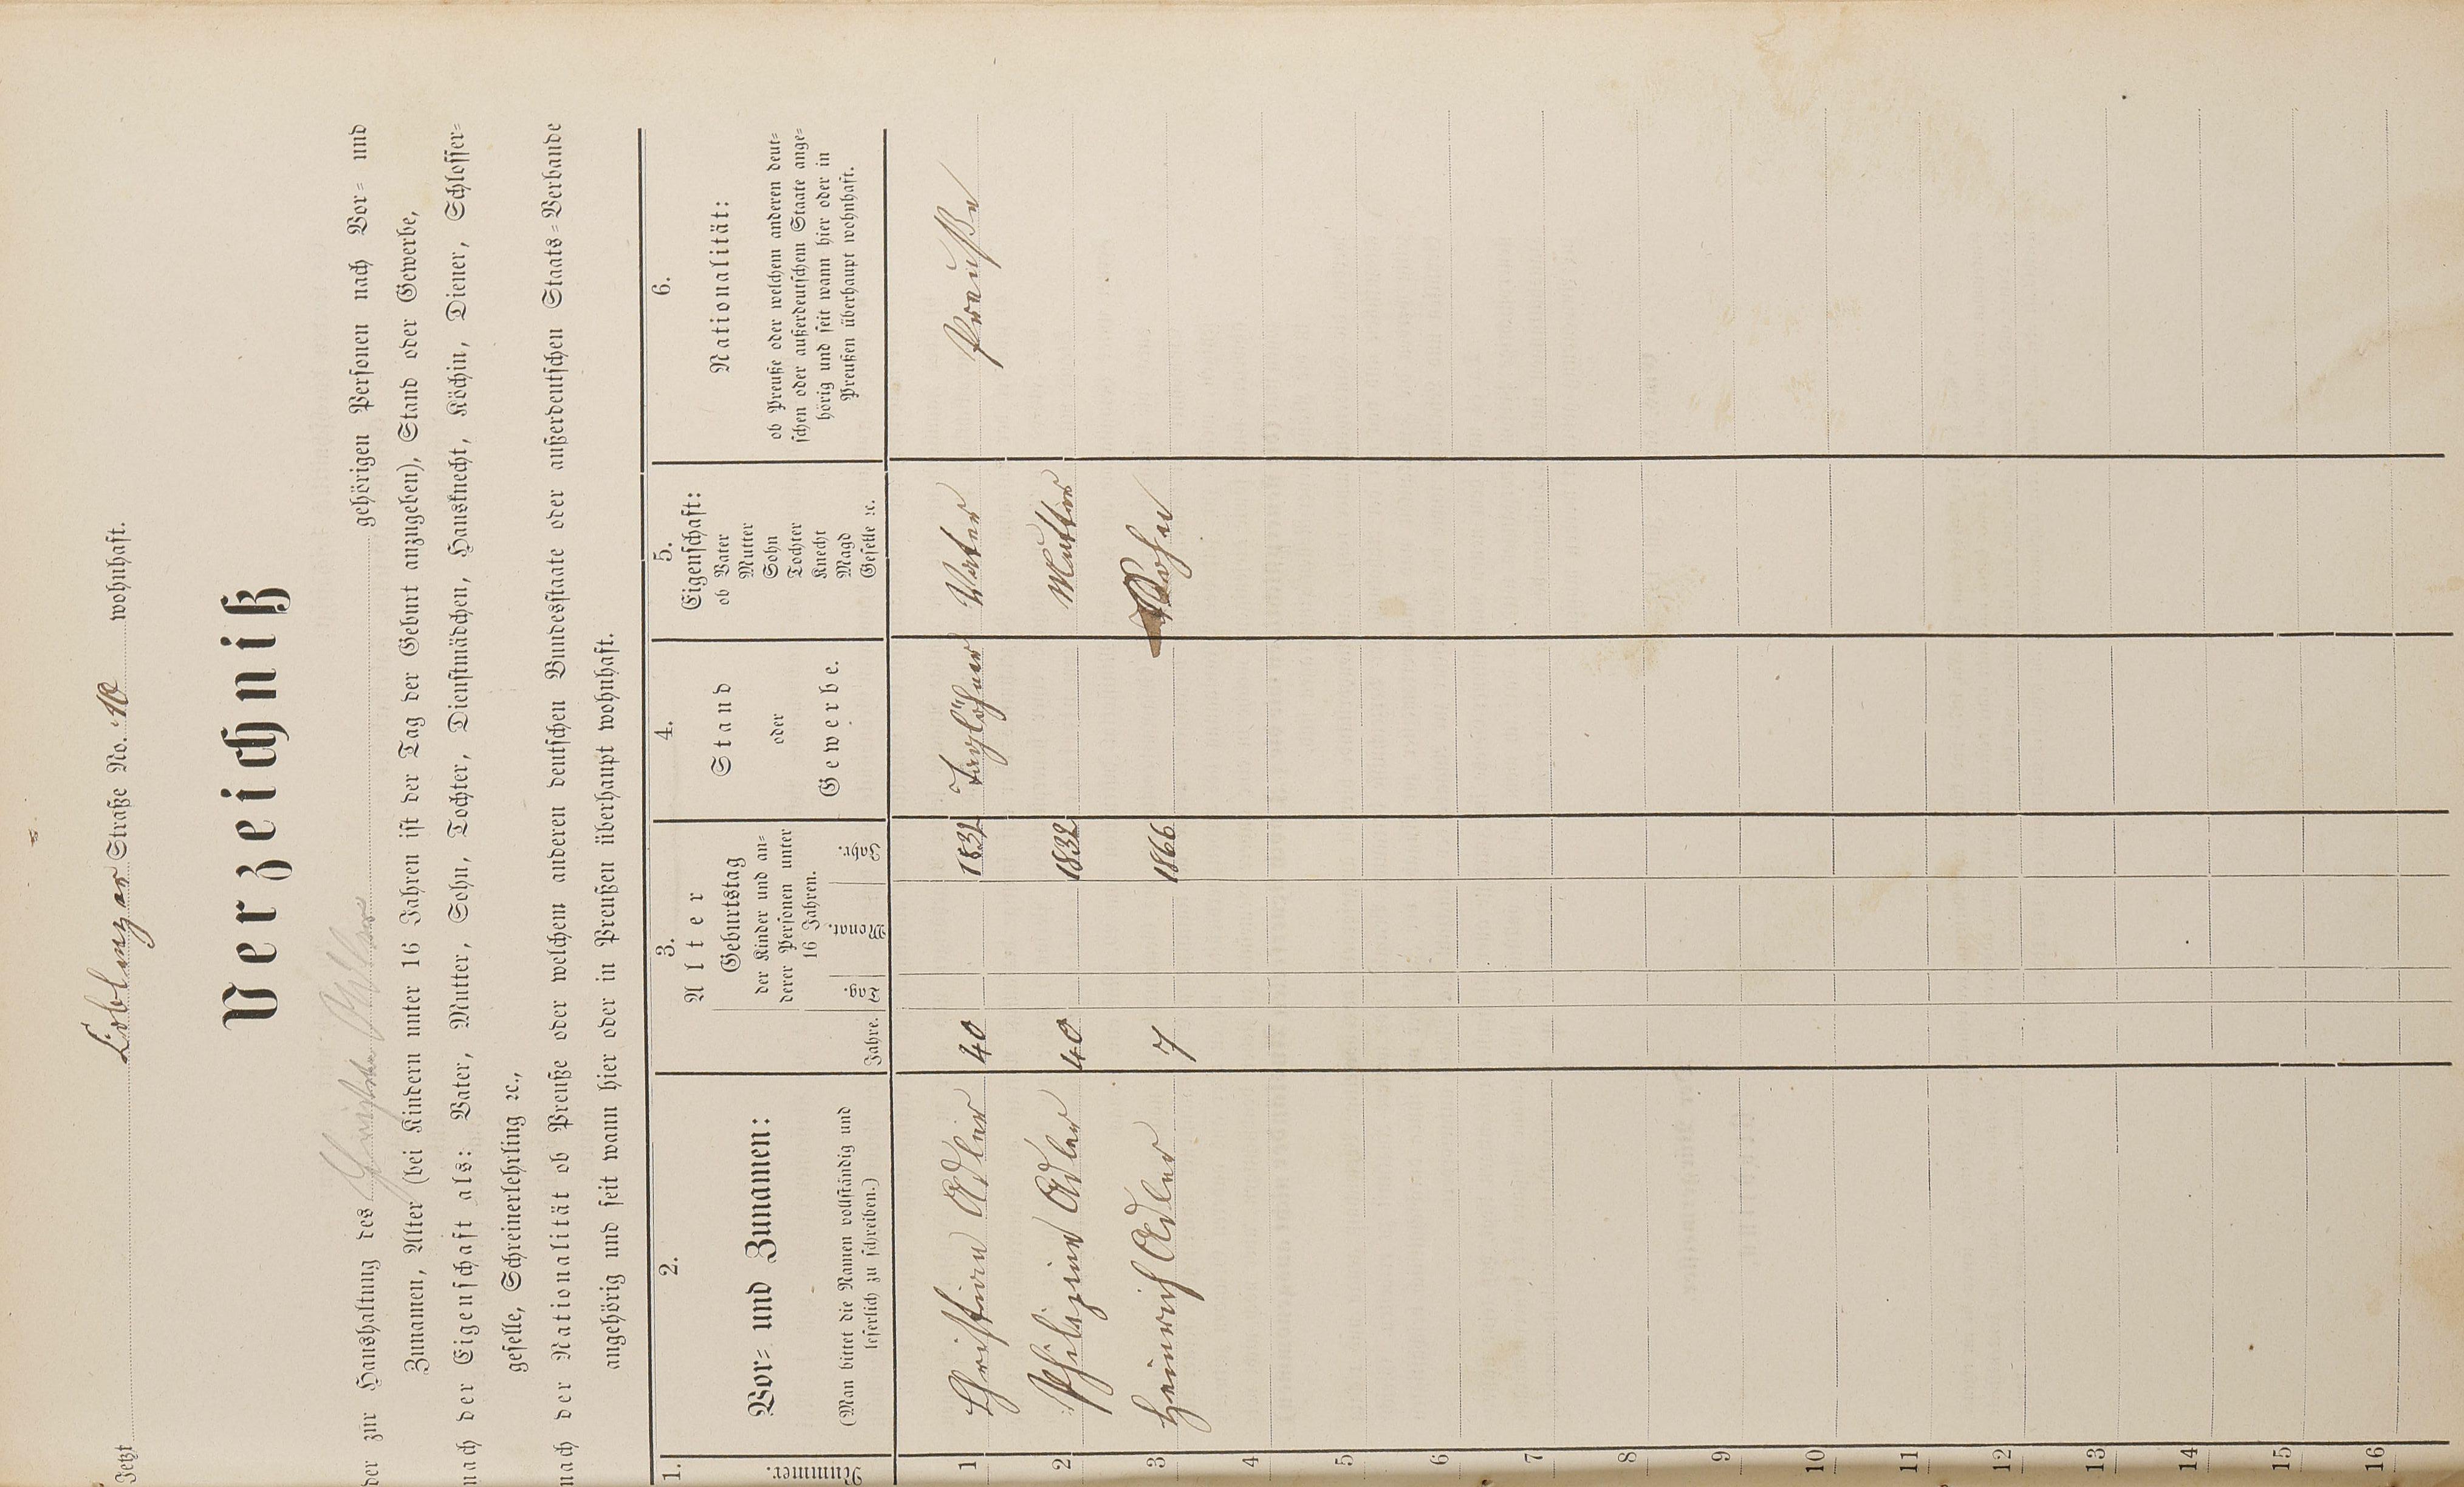 Jetzt Coblenzer Straße No. 10 wohnhaft.
Verzeichniß
der zur Haushaltung des Christian Adler gehörigen Personen nach Vor- und
Zunamen, Alter (bei Kindern unter 16 Jahren ist der Tag der Geburt anzugeben), Stand oder Gewerbe,
nach der Eigenschaft als: Vater, Mutter, Sohn, Tochter, Dienstmädchen, Hausknecht, Köchin, Diener, Schlosser-
geselle, Schreinerlehrling ꝛc.,
nach der Nationalität ob Preuße oder welchem anderen deutschen Bundesstaate oder außerdeutschen Staats-Verbande
angehörig und seit wann hier oder in Preußen überhaupt wohnhaft.
1.
Nummer.
2.
Vor- und Zunamen:
(Man bittet die Namen vollständig und
leserlich zu schreiben.)
3.
Alter
Jahre.
Geburtstag
der Kinder und an-
derer Personen unter
16 Jahren.
Tag. Monat. Jahr.
4.
Stand
oder
Gewerbe.
5.
Eigenschaft:
ob Vater
Mutter
Sohn
Tochter
Knecht
Magd
Geselle ꝛc.
6.
Nationalität:
ob Preuße oder welchem anderen deut-
schen oder außerdeutschen Staate ange-
hörig und seit wann hier oder in
Preußen überhaupt wohnhaft.
1 Christian Adler 40 1832 Taglöhner Vater Preuße
2 Philipine Adler 40 1832 Mutter
3 Heinrich Adler 7 1866 Sohn
4
5
6
7
8
9
10
11
12
13
14
15
16